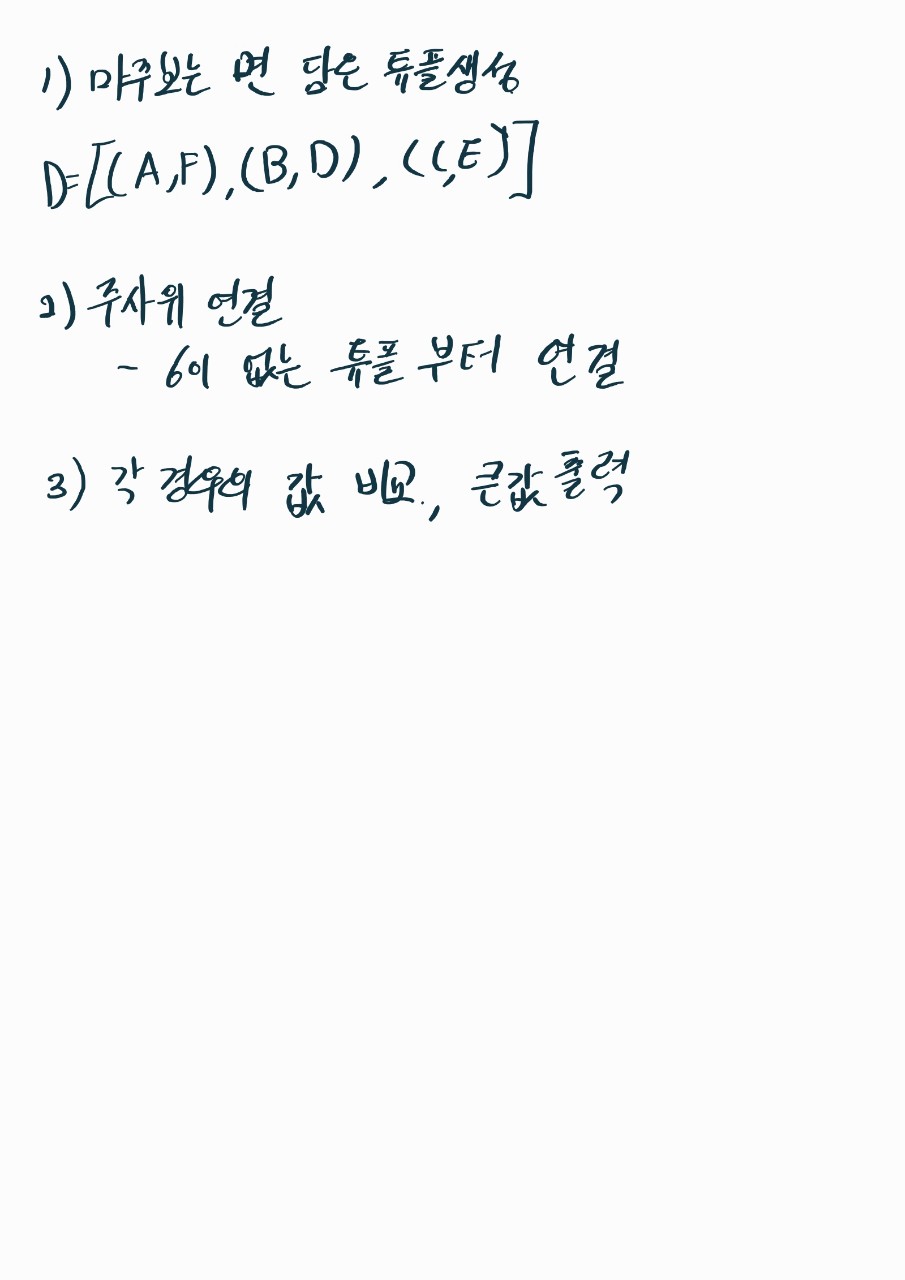 1) 마주보는 면 담은 튜플생성
D=[(A,F),(B,D),(C,E)]
2) 주사위 연결
- 6이 없는 튜플 부터 연결
3) 각 경우의 값 비교, 큰값 출력